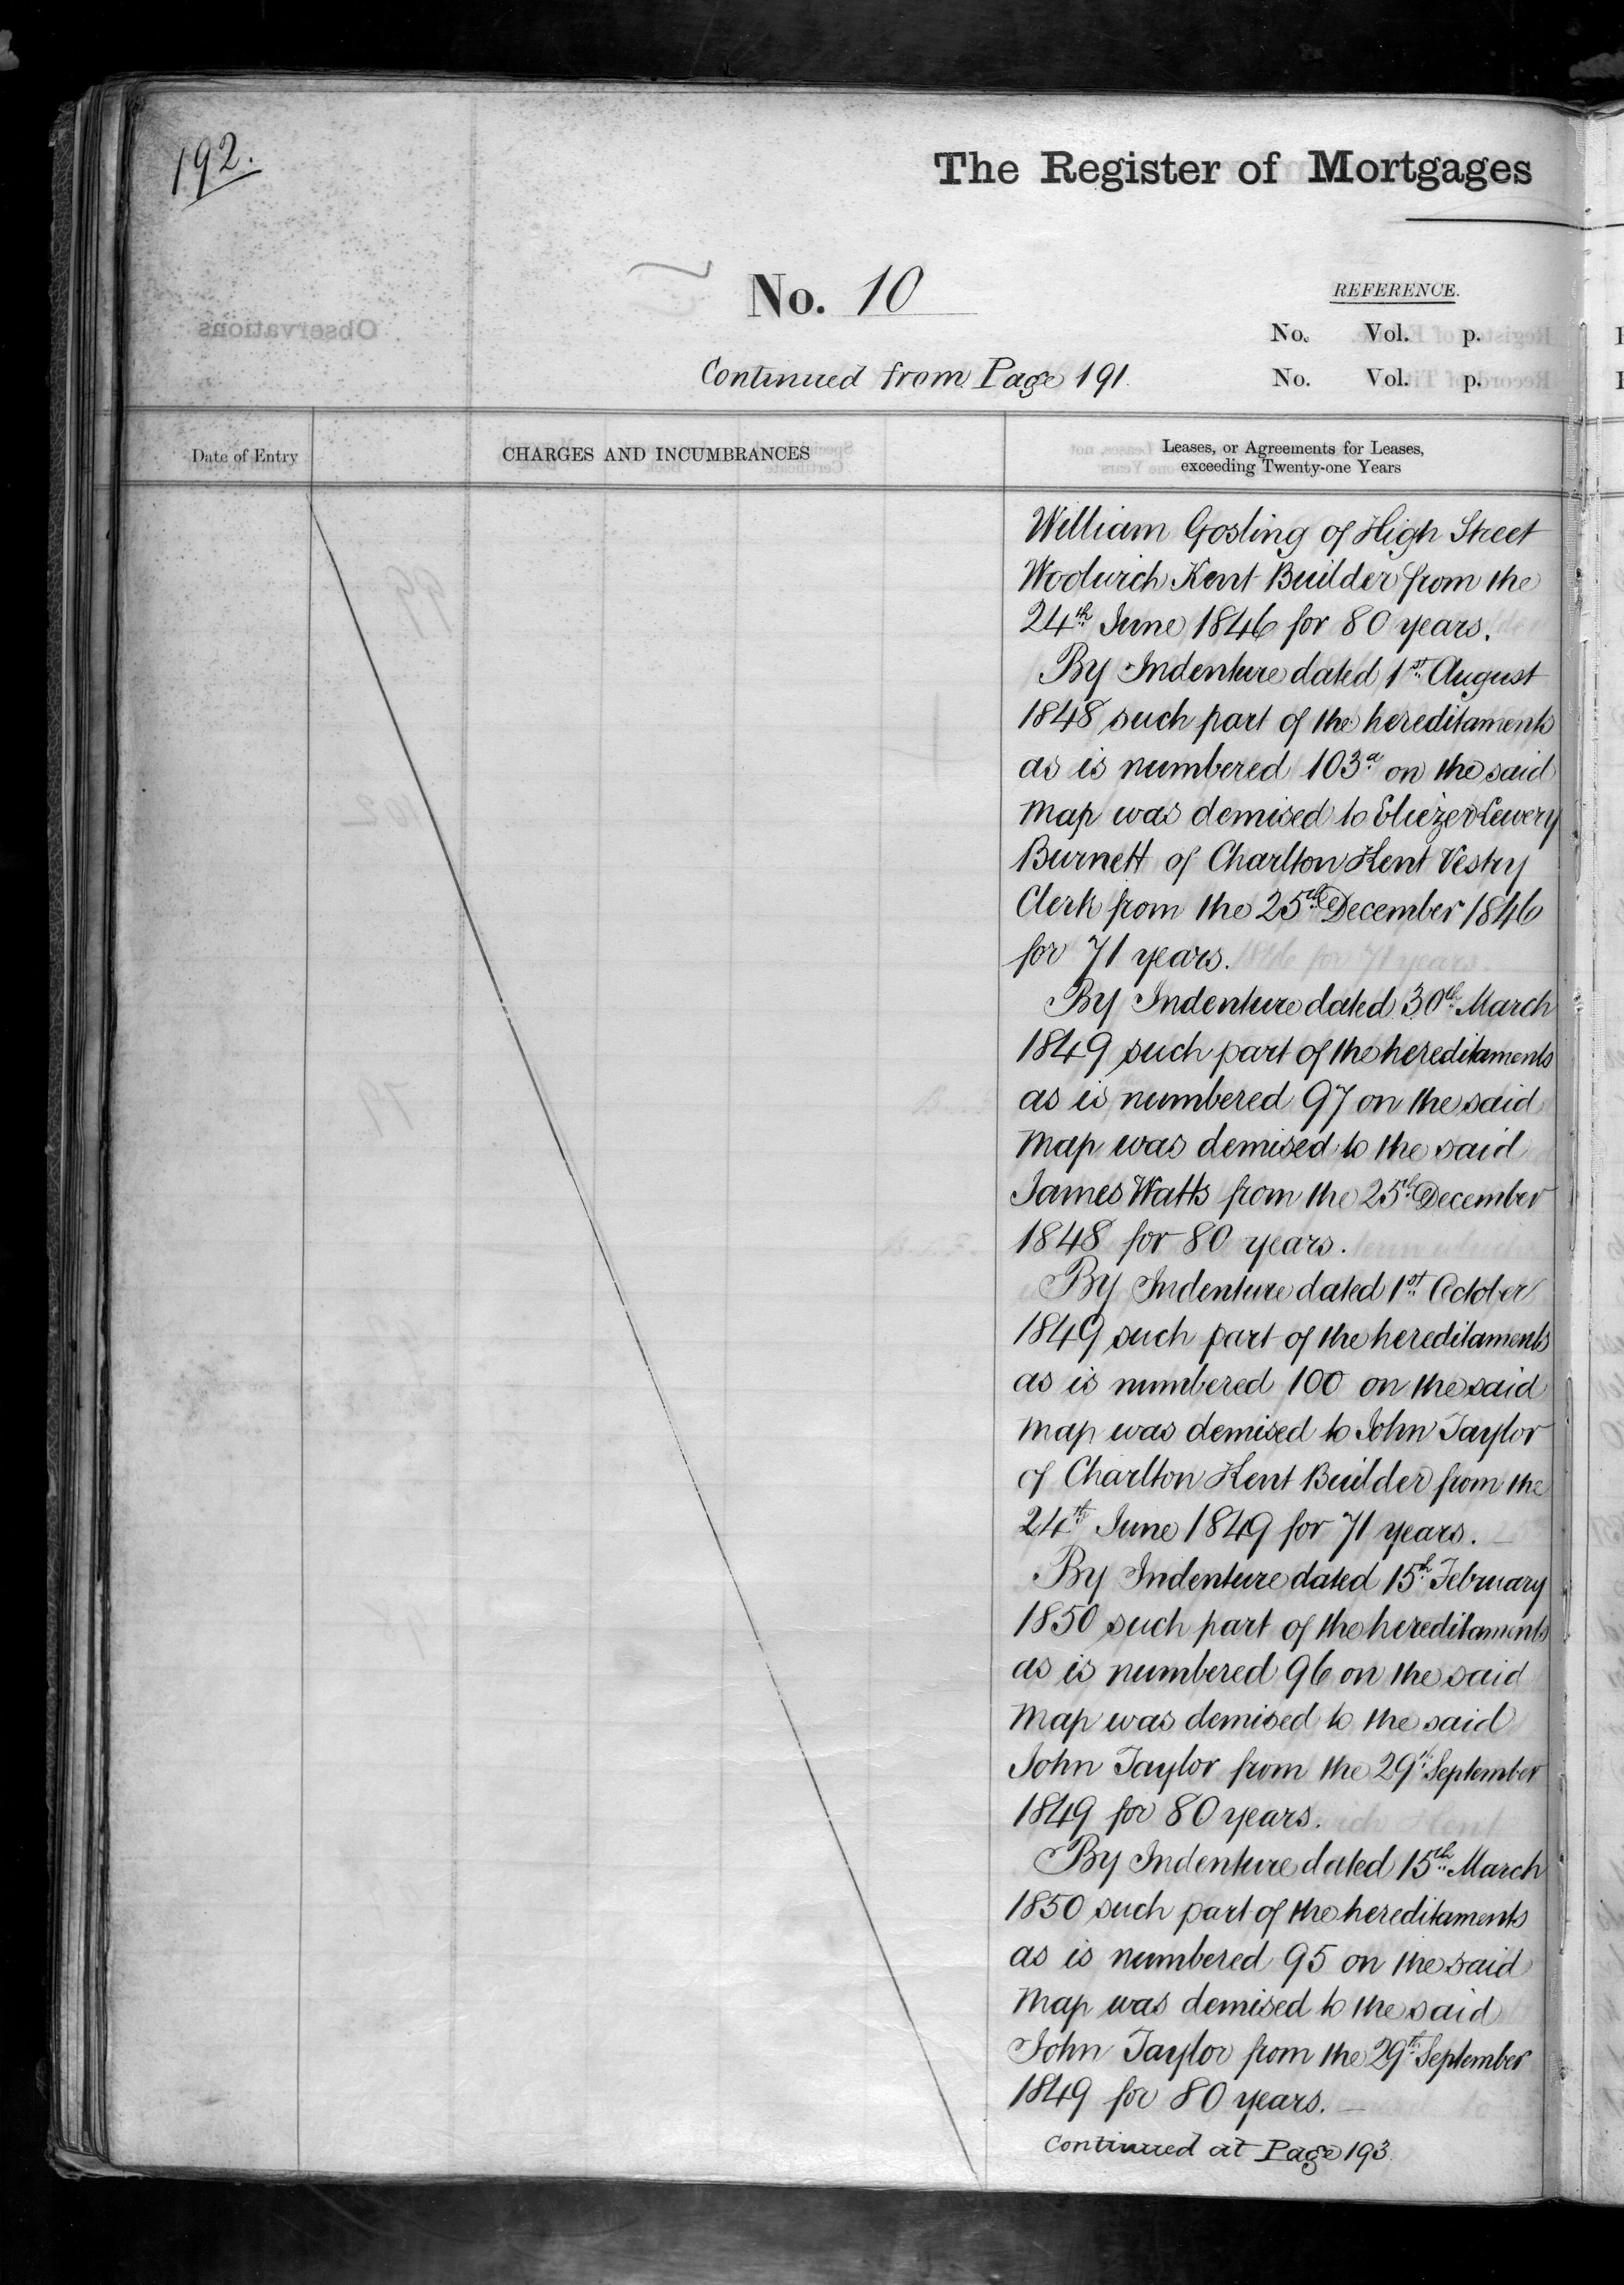 192.
The Register of Mortgages
No. 10
REFERENCE.
No. Vol. p.
Continued from Page 191.
No. Vol. p.
Date of Entry
CHARGES AND INCUMBRANCES
Leases, or Agreements for Leases,
exceeding Twenty-one Years
William Gosling of High Street
Woolwich Kent Builder from the
24th June 1846 for 80 years.
By Indenture dated 1st August
1848 such part of the hereditaments
as is numbered 103a on the said
Map was demised to Eliezer Lewery
Burnett of Charlton Kent Vestry
Clerk from the 25th December 1846
for 71 years.
By Indenture dated 30th March
1849 such part of the hereditaments
as is numbered 97 on the said
Map was demised to the said
James Watts from the 25th December
1848 for 80 years.
By Indenture dated 1st October
1849 such part of the hereditaments
as is numbered 100 on the said
Map was demised to John Taylor
of Charlton Kent Builder from the
24th June 1849 for 71 years.
By Indenture dated 15th February
1850 such part of the hereditaments
as is numbered 96 on the said
Map was demised to the said
John Taylor from the 29th September
1849 for 80 years.
By Indenture dated 15th March
1850 such part of the hereditaments
as is numbered 95 on the said
Map was demised to the said
John Taylor from the 29th September
1849 for 80 years.
Continued at Page 193.